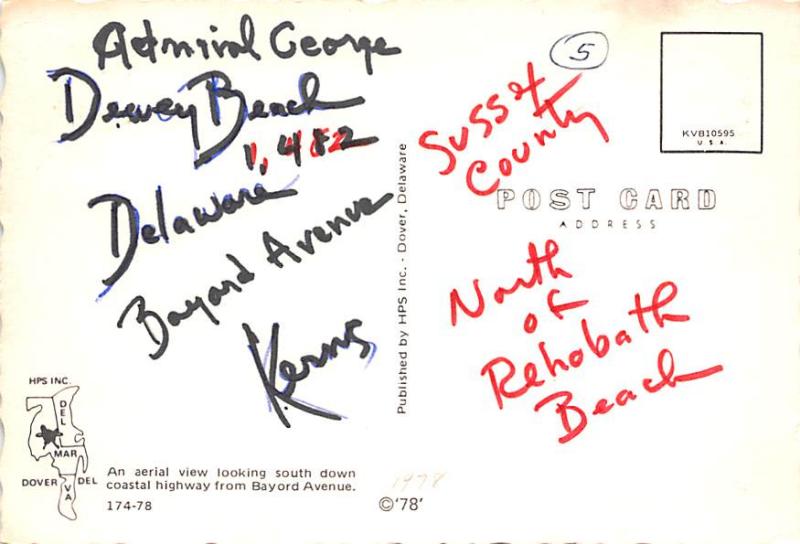 Admiral George
Dewey Beach
1,482
Delaware
Bayard Avenue
Kerns
HPS INC.
DEL
MAR
VA
DOVER DEL
An aerial view looking south down
coastal highway from Bayord Avenue.
174-78
Published by HPS Inc. - Dover, Delaware
1978
©'78'
5
Sussex
County
KVB10595
U.S.A.
POST CARD
ADDRESS
North
of
Rehobath
Beach